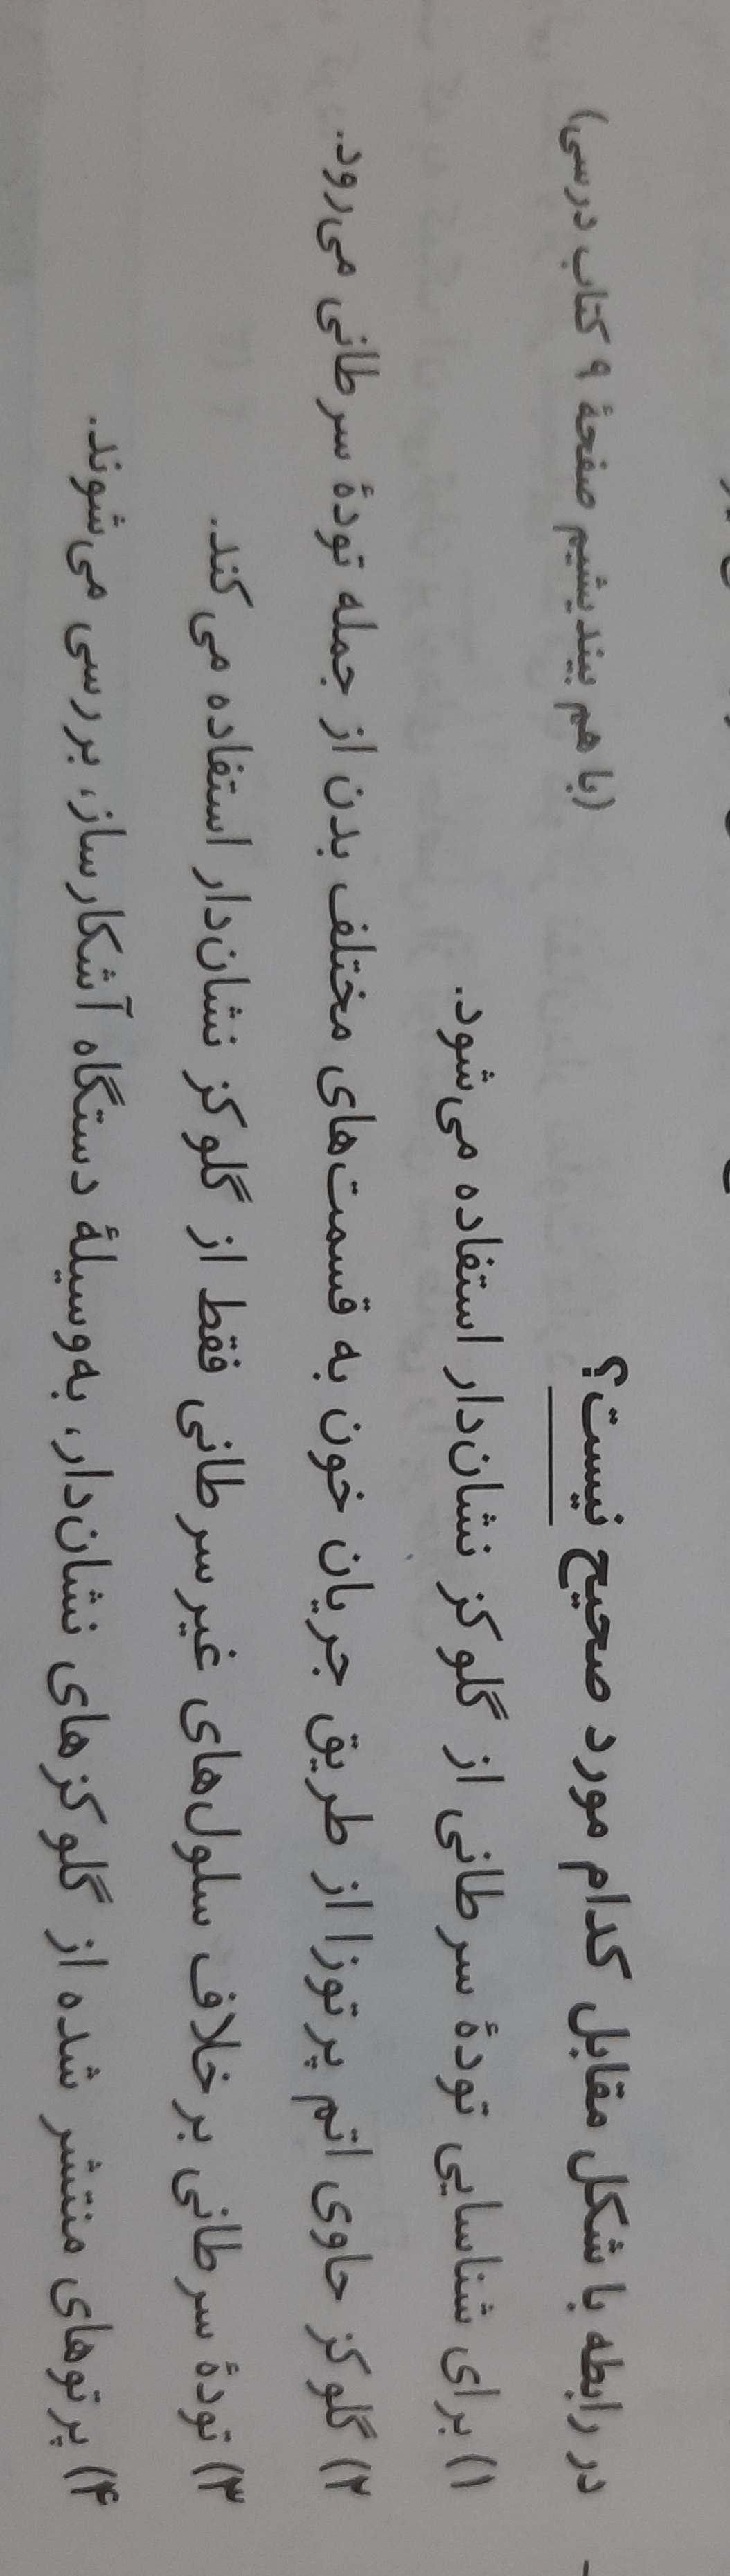 - در رابطه با شکل مقابل کدام مورد صحیح نیست؟ (با هم بیندیشیم صفحهٔ ۹ کتاب درسی)
۱) برای شناسایی تودهٔ سرطانی از گلوکز نشان‌دار استفاده می‌شود.
۲) گلوکز حاوی اتم پرتوزا از طریق جریان خون به قسمت‌های مختلف بدن از جمله تودهٔ سرطانی می‌رود.
۳) تودهٔ سرطانی برخلاف سلول‌های غیرسرطانی فقط از گلوکز نشان‌دار استفاده می‌کند.
۴) پرتوهای منتشر شده از گلوکزهای نشان‌دار، به‌وسیلهٔ دستگاه آشکارساز، بررسی می‌شوند.